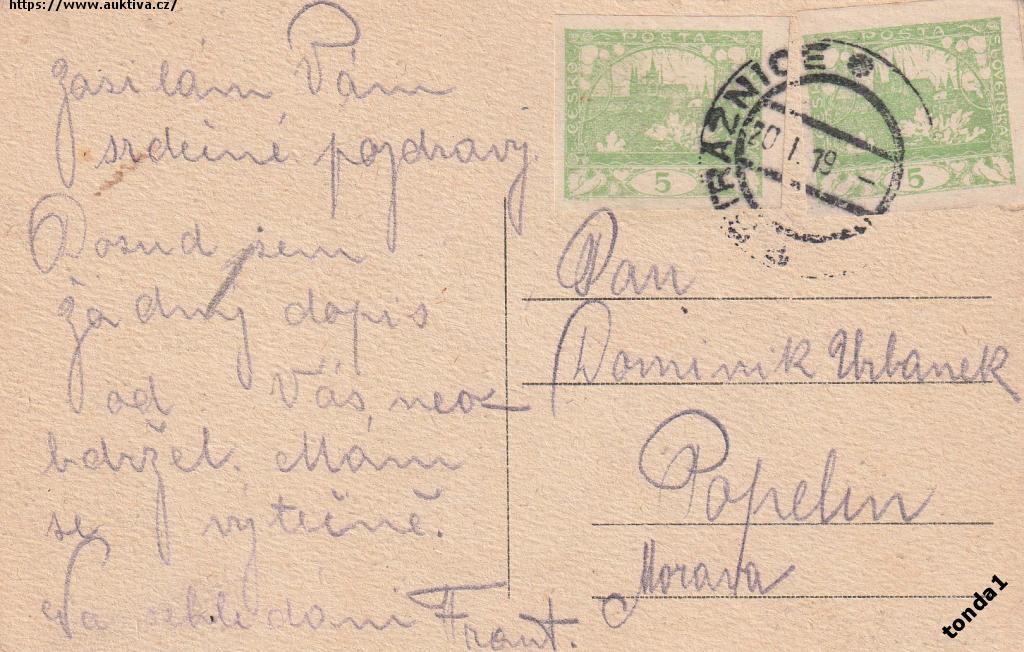 https://www.auktiva.cz/
Zasílám Vám
srdečné pozdravy.
Dosud jsem
žádný dopis
od Vás neo-
bdržel. Mám
se výtečně.
Na shledání
Frant.
POŠTA
ČESKO
SLOVENSKÁ
5
POŠTA
SLOVENSKÁ
5
STRÁŽNICE
20 I. 19
Pan
Dominik Urbanek
Popelin
Morava
tonda1